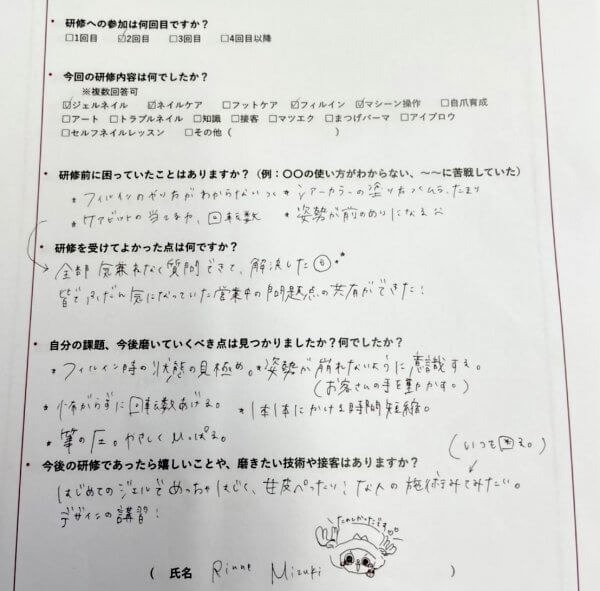 • 研修への参加は何回目ですか？
□1回目 ☑2回目 □3回目 □4回目以降
• 今回の研修内容は何でしたか？
※複数回答可
☑ジェルネイル ☑ネイルケア □フットケア ☑フィルイン ☑マシーン操作 □自爪育成
□アート □トラブルネイル □知識 □接客 □マツエク □まつげパーマ □アイブロウ
□セルフネイルレッスン □その他（ ）
• 研修前に困っていたことはありますか？（例：〇〇の使い方がわからない、〜〜に苦戦していた）
* フィルインのやり方がわからない * シアーカラーの塗り方（ムラ、たまり
* ケアビットの当て方、回転数 * 姿勢が前のめりになる
• 研修を受けてよかった点は何ですか？
全部気兼ねなく質問できて、解決した
皆でふだん気になっていた営業中の問題点の共有ができた！
• 自分の課題、今後磨いていくべき点は見つかりましたか？何でしたか？
* フィルイン時の状態の見極め。* 姿勢が崩れないように意識する。
（お客さんの手を動かす。）
* 怖がらずに回転数あげる。 * 1本1本にかける時間短縮。
* 筆の圧。やさしくひっぱる。
（いつも困る。）
• 今後の研修であったら嬉しいことや、磨きたい技術や接客はありますか？
はじめてのジェルでめっちゃはじく、甘皮ぺったり！な人の施術みてみたい。
デザインの講習！
たのしかったです
（ 氏名 Rinne Mizuki ）